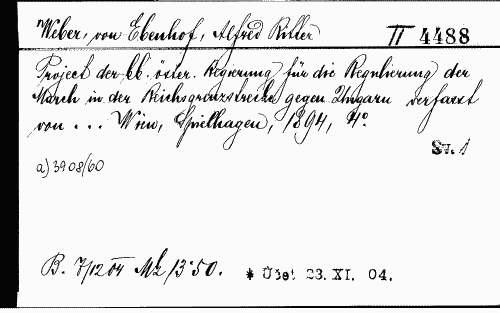 Weber, von Ebenhof, Alfred Ritter II 4488
Project der kk. österr. Regierung für die Regulierung der
March in der Reichsgrenzstrecke gegen Ungarn verfasst
von ... Wien, Spielhagen, 1894, 4°.
St. 1
a) 3908/60
B. 7/12 04 Mk 13·50. * Üset 23. XI. 04.